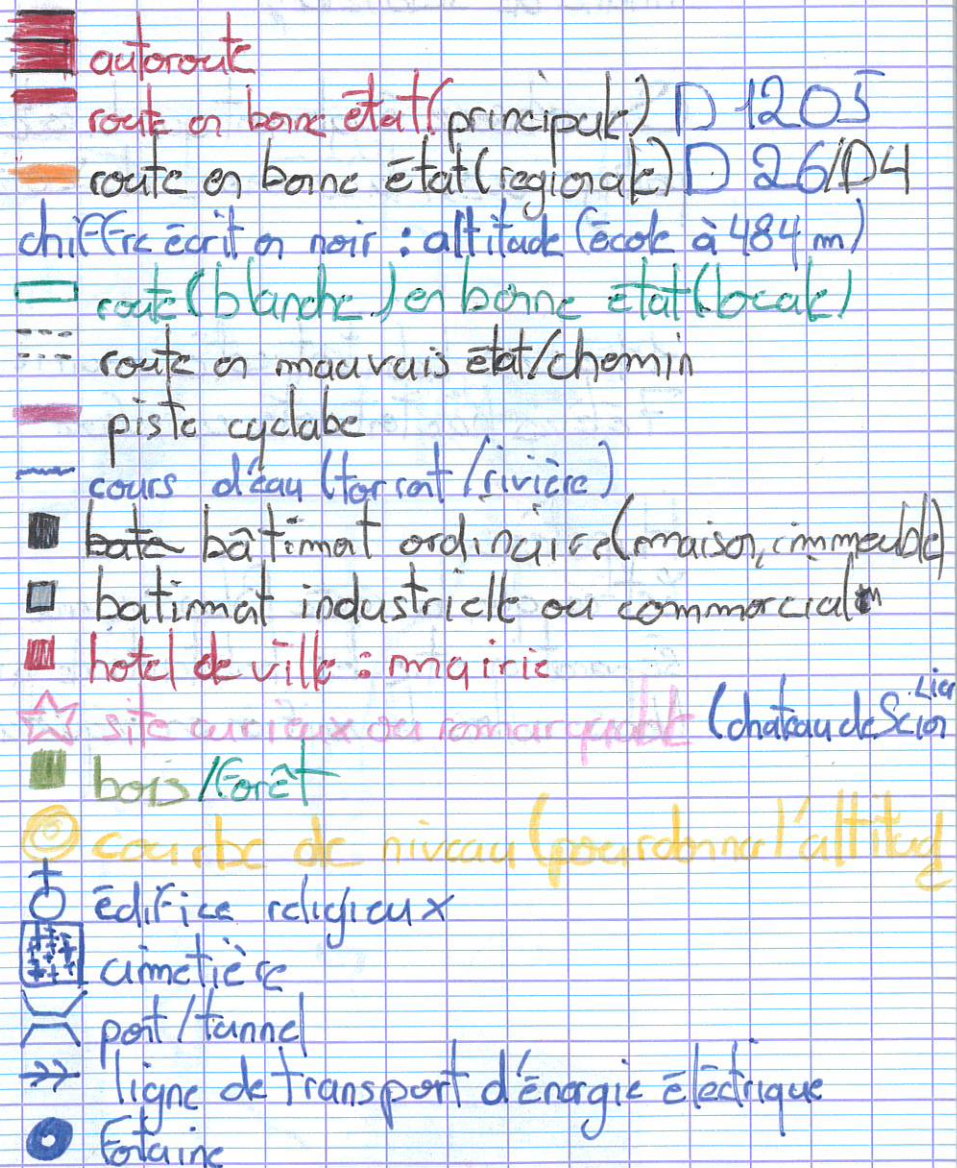 autoroute
route en bonne état (principale) D 1205
route en bonne état (regionale) D 26/D4
chiffre écrit en noir : altitude (école à 484 m)
route (blanche) en bonne état (locale)
route en mauvais état/chemin
piste cyclabe
cours d'éau (torrent/rivière)
bate bâtiment ordinaire (maison, immeuble)
batiment industrielle ou commercial
hotel de ville : mairie
site curieux ou remarquable (chateau de Scion Lier
bois/forêt
courbe de niveau (pour donner l'altitude
édifice religieux
cimetière
pont/tunnel
ligne de transport d'énergie électrique
fontaine